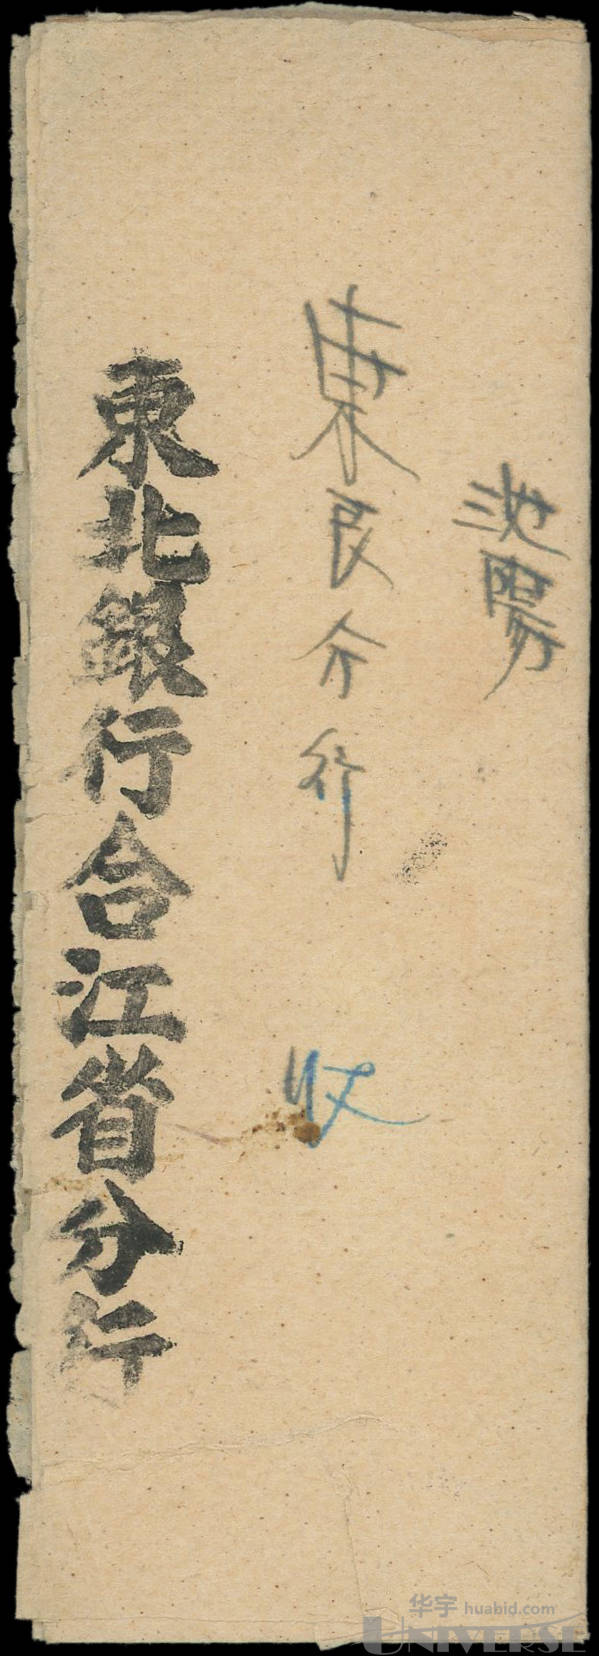 沈陽
東艮分行
收
東北銀行合江省分行
华宇 huabid.com
UNIVERSE